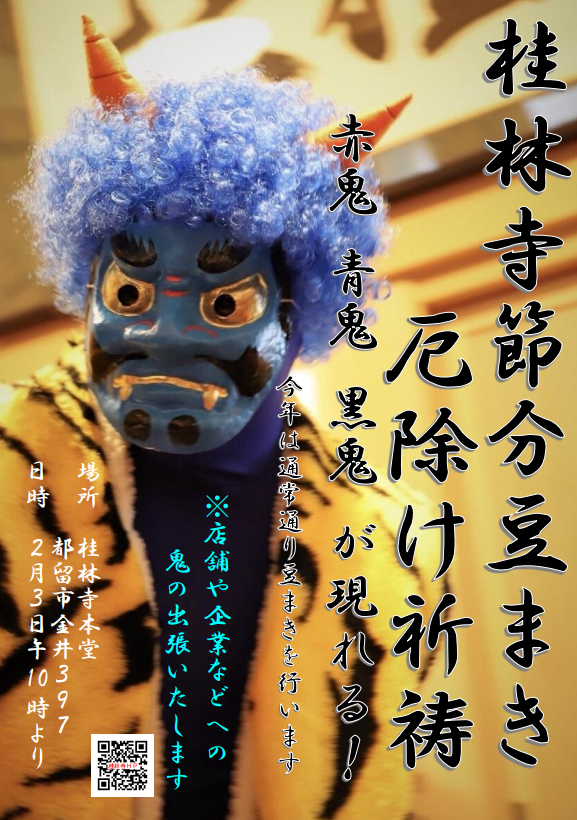 桂林寺節分豆まき
厄除け祈祷
赤鬼 青鬼 黒鬼 が現れる！
今年は通常通り豆まきを行います
※店舗や企業などへの
鬼の出張いたします
場所 桂林寺本堂
都留市金井397
日時 2月3日午10時より